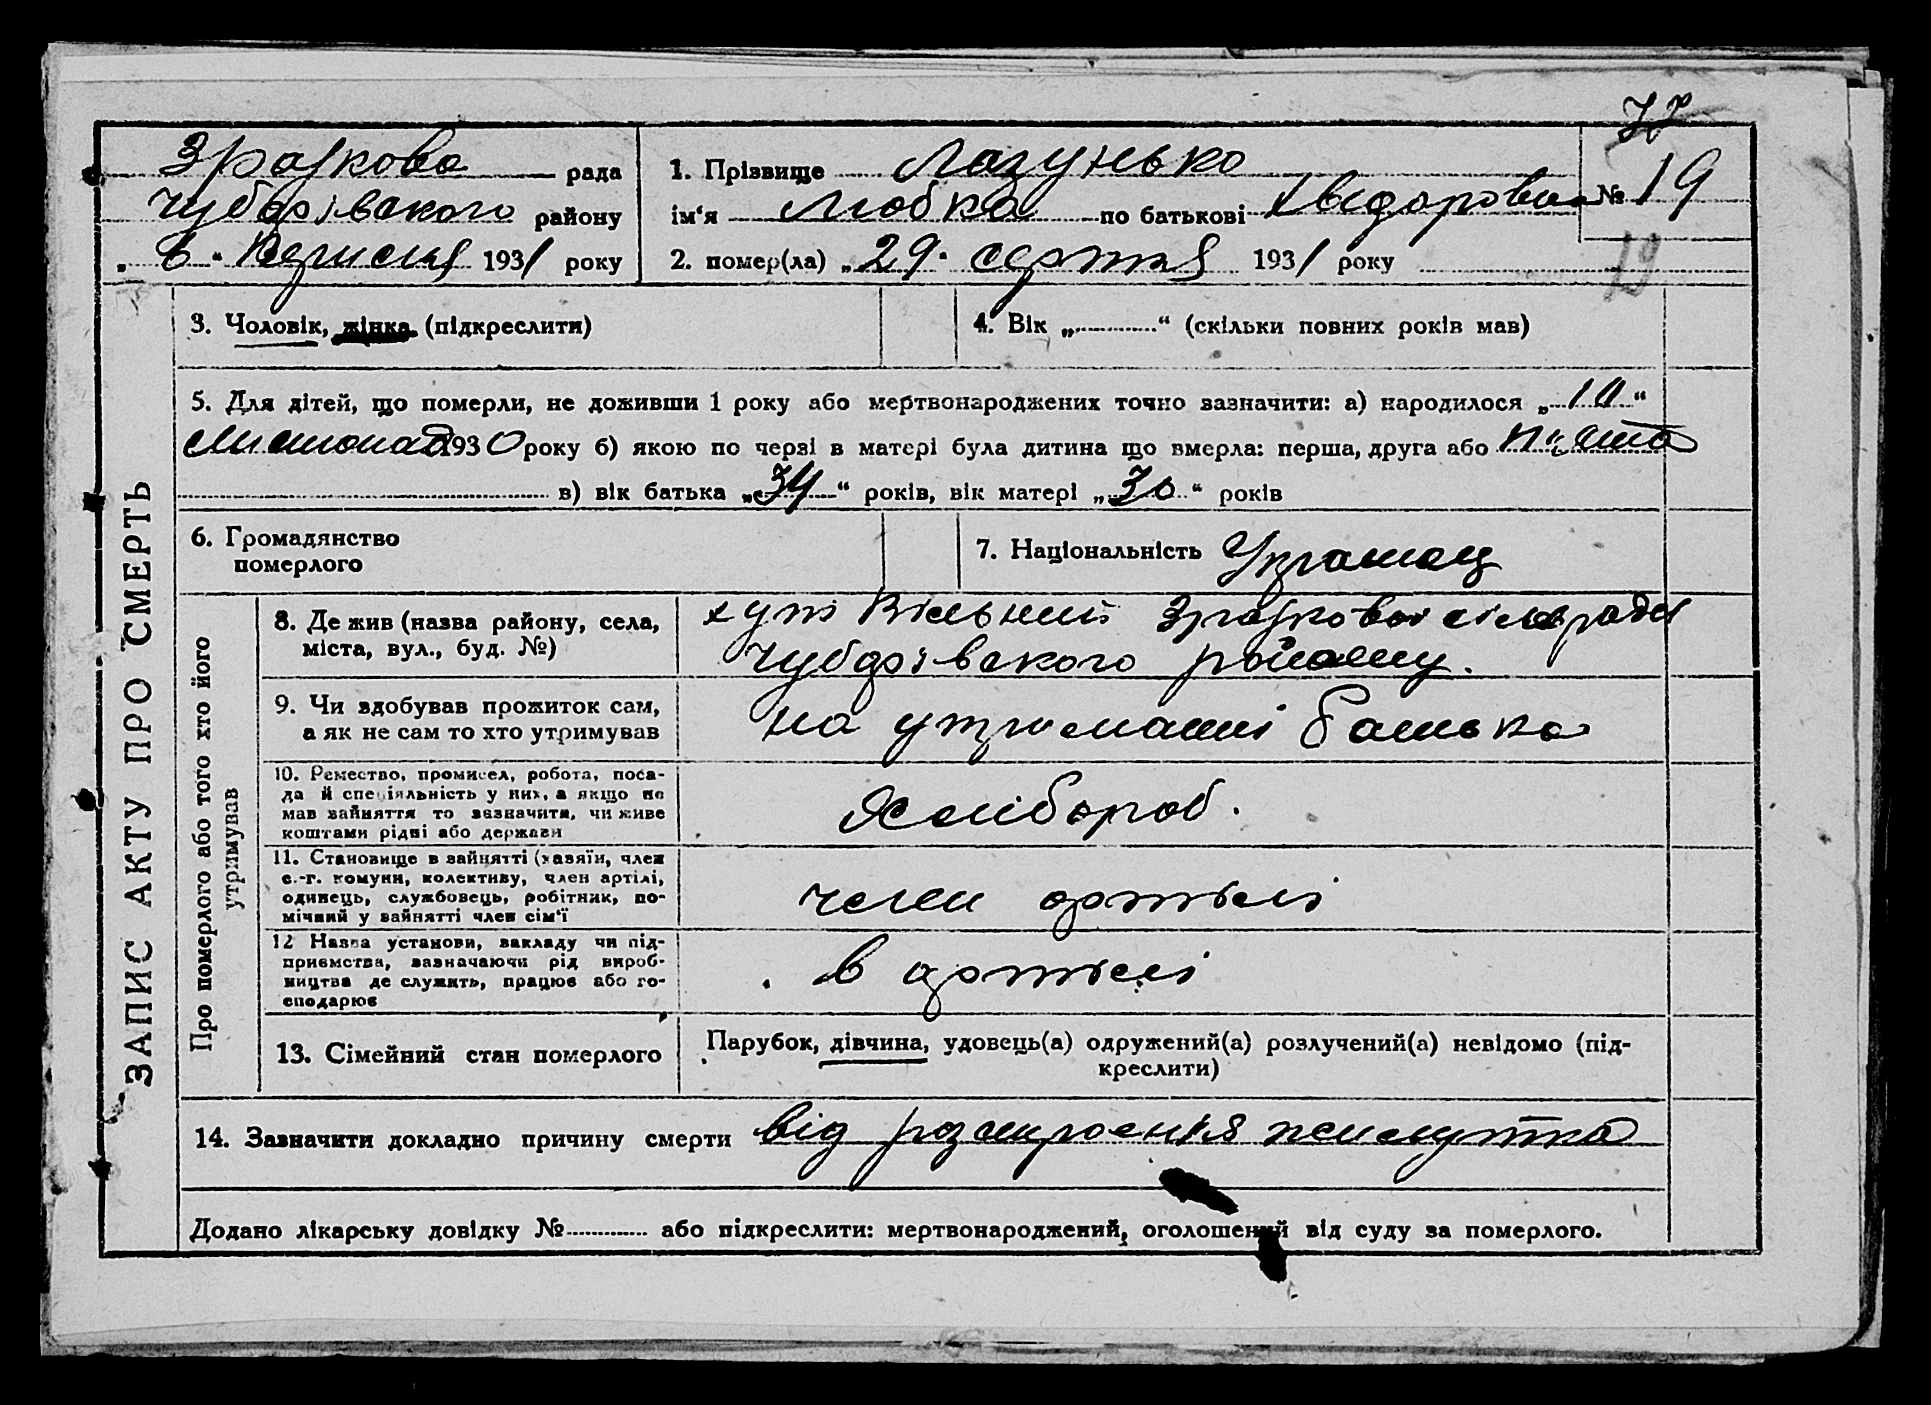 77
Зразкова рада
Чубарівського району
„ 6 “ Вересня 1931 року
1. Прізвище Лазунько
ім‘я Любка по батькові
№ 19
2. помер(ла) „ 29. серпня 1931 року
19
ЗАПИС АКТУ ПРО СМЕРТЬ
3. Чоловік, жінка (підкреслити)
4. Вік „ “ (скільки повних років мав)
5. Для дітей, що померли, не доживши 1 року або мертвонароджених точно зазначити: а) народилося „ 10 “
Листопад 1930 року б) якою по черзі в матері була дитина що вмерла: перша, друга або п'ята
в) вік батька „ 34 “ років, вік матері „ 30 “ років
6. Громадянство
померлого
7. Національність Українец
Про померлого або того хто його
утримував
8. Де жив (назва району, села,
міста, вул., буд. №)
хут Вільний Зразкової сільради
Чубарівського району.
9. Чи здобував прожиток сам,
а як не сам то хто утримував
на утриманні батька
10. Ремество, промисел, робота, поса-
да й спеціяльність у них, а якщо не
мав зайняття то зазначити, чи живе
коштами рідні або держави
Хлібороб.
11. Становище в зайнятті (хазяїн, член
с.-г. комуни, колективу, член артілі,
одинець, службовець, робітник, по-
мічний у зайнятті член сім'ї
член артілі
12 Назва установи, закладу чи під-
приємства, зазначаючи рід вироб-
ництва де служить, працює або го-
сподарює
в артілі
13. Сімейний стан померлого
Парубок, дівчина, удовець(а) одружений(а) розлучений(а) невідомо (під-
креслити)
14. Зазначити докладно причину смерти від розстроєння желутка
Додано лікарську довідку № або підкреслити: мертвонароджений, оголошений від суду за померлого.